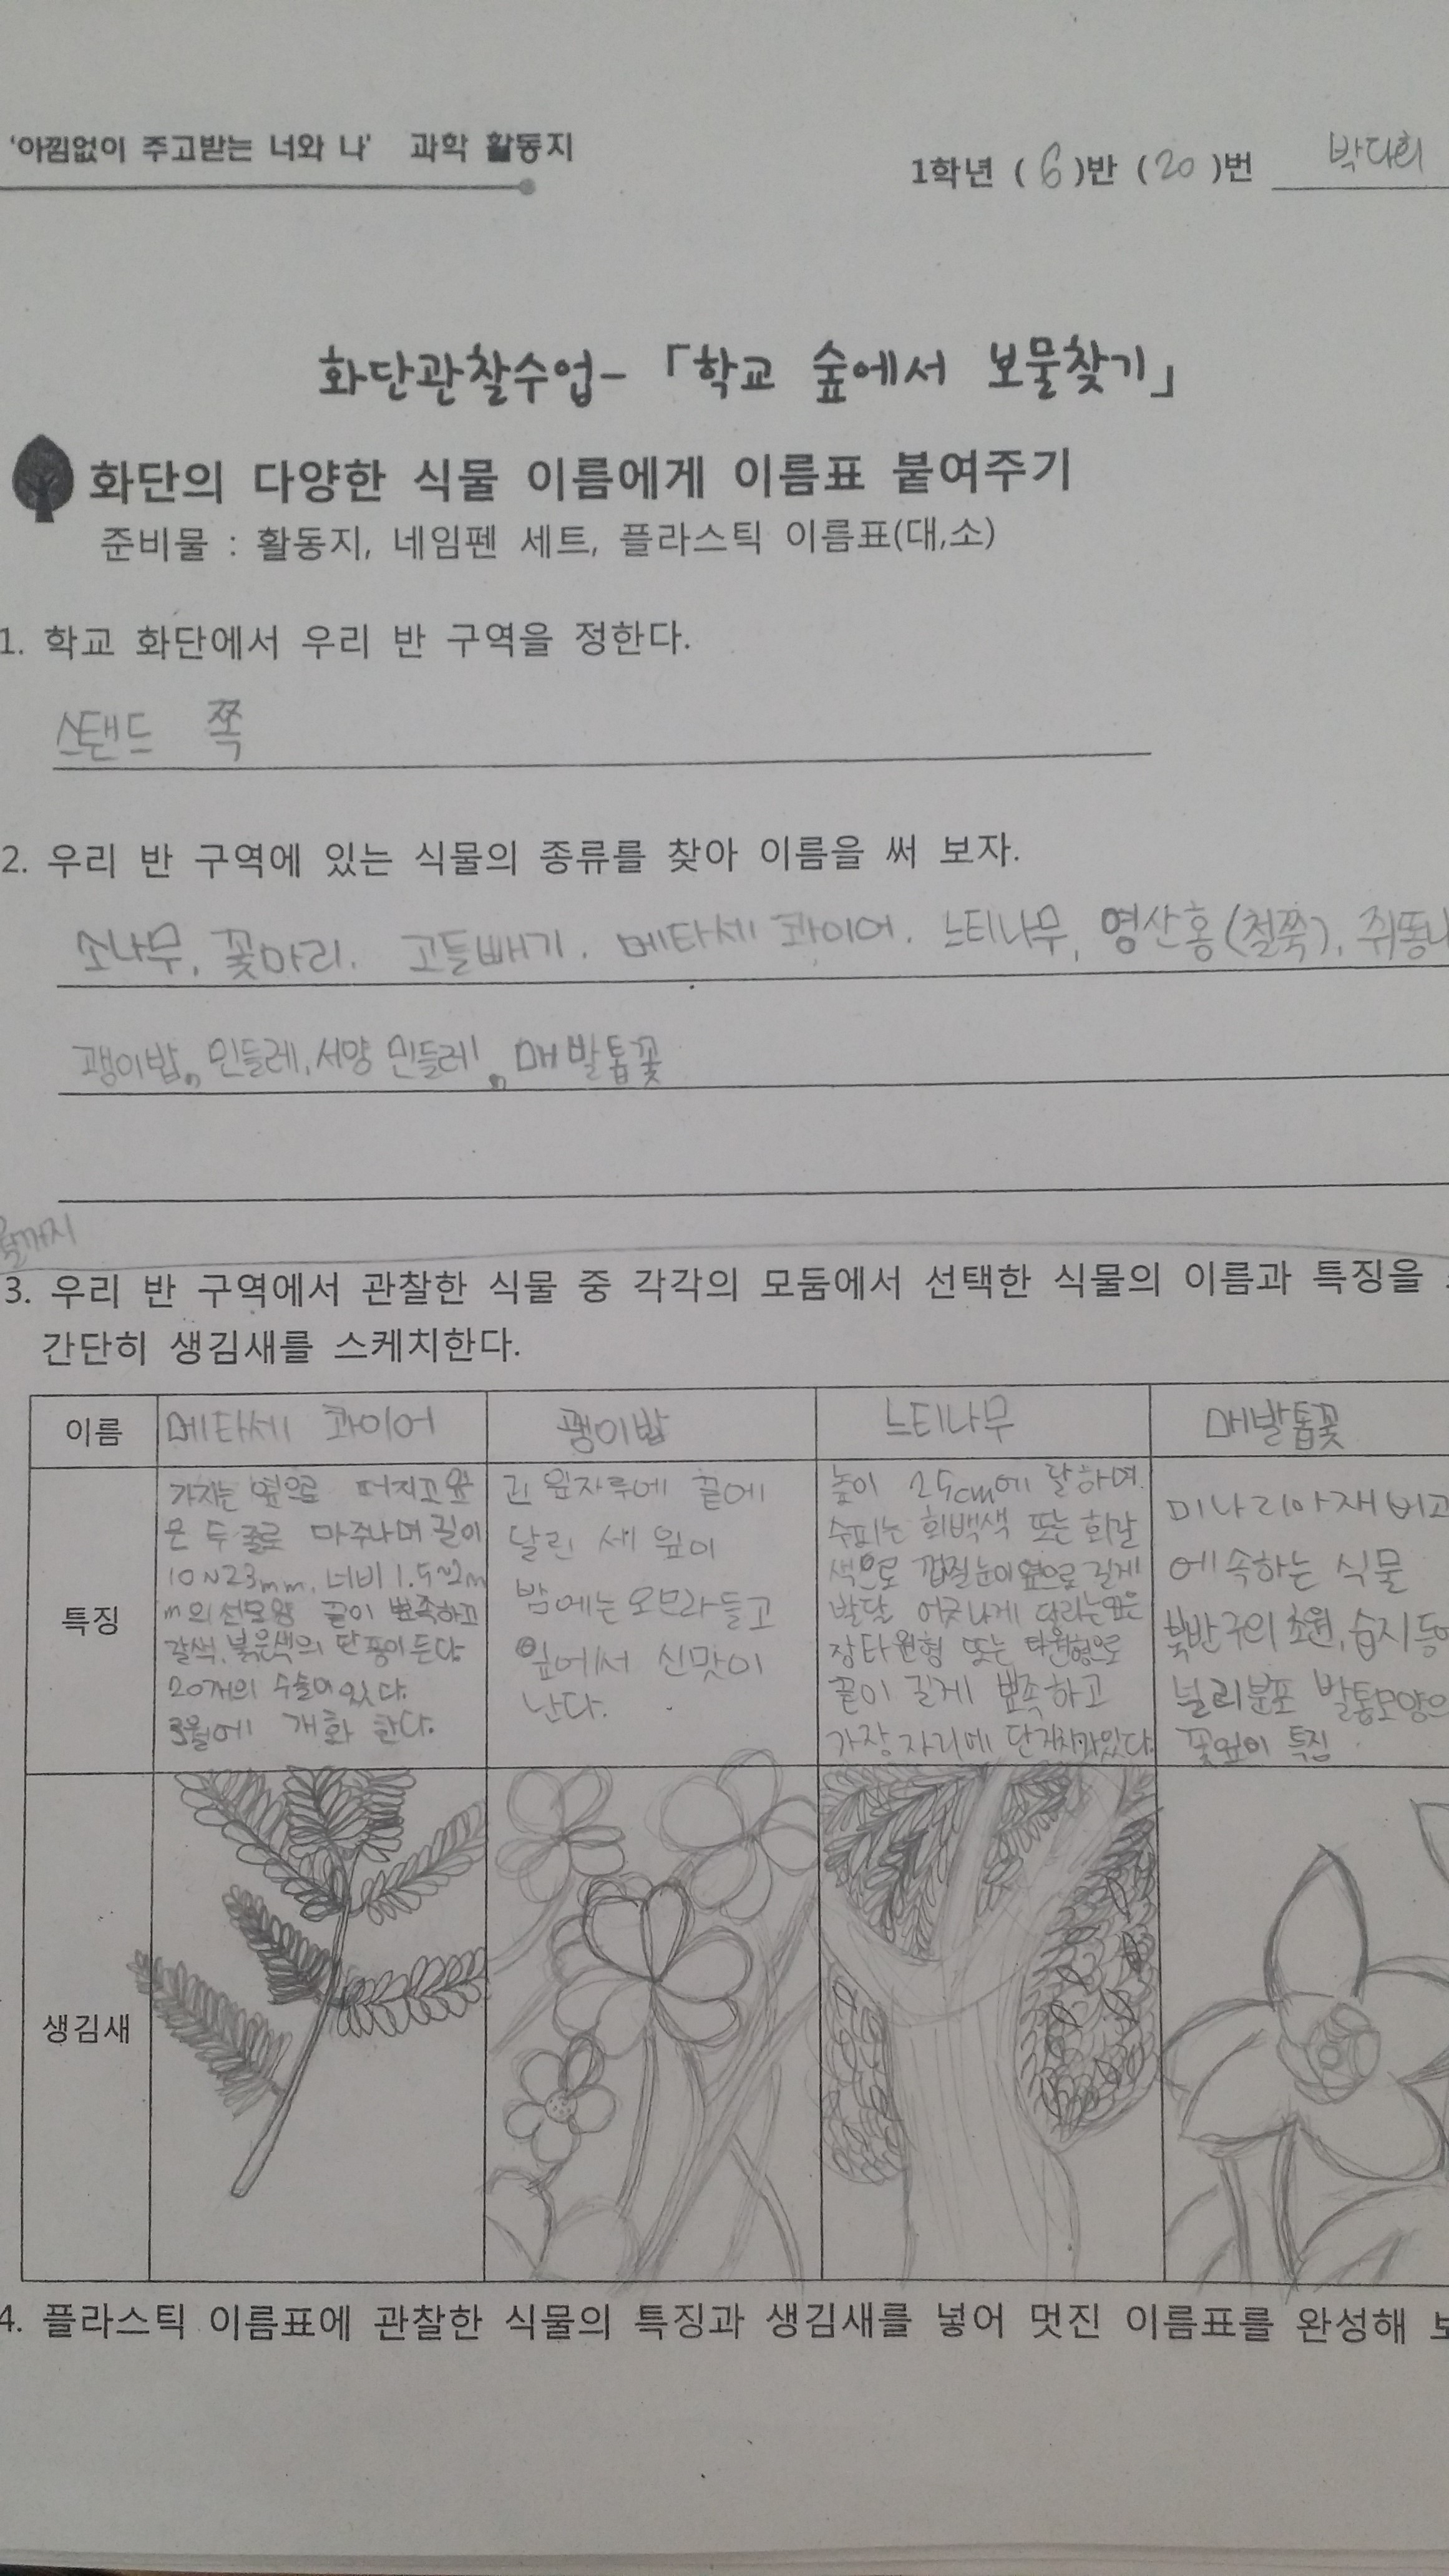 '아낌없이 주고받는 너와 나' 과학 활동지
1학년 ( 6 )반 ( 20 )번 박다희
화단관찰수업-「학교 숲에서 보물찾기」
화단의 다양한 식물 이름에게 이름표 붙여주기
준비물 : 활동지, 네임펜 세트, 플라스틱 이름표(대,소)
1. 학교 화단에서 우리 반 구역을 정한다.
스탠드 쪽
2. 우리 반 구역에 있는 식물의 종류를 찾아 이름을 써 보자.
소나무, 꽃마리. 고들빼기. 메타세 콰이어. 느티나무, 영산홍(철쭉), 쥐똥나
괭이밥, 민들레, 서양 민들레, 매발톱꽃
3. 우리 반 구역에서 관찰한 식물 중 각각의 모둠에서 선택한 식물의 이름과 특징을
간단히 생김새를 스케치한다.
이름 메타세 콰이어 괭이밥 느티나무 매발톱꽃
특징
가지는 옆으로 퍼지고 잎
은 두 줄로 마주나며 길이
10~23mm, 너비 1.5~2m
m의 선모양 끝이 뾰족하고
갈색, 붉은색의 단풍이 든다
20개의 수술이 있다.
3월에 개화 한다.
긴 잎자루에 끝에
달린 세 잎이
밤에는 오므라들고
잎에서 신맛이
난다.
높이 25cm에 달하며
수피는 회백색 또는 회갈
색으로 껍질눈이 옆으로 길게
발달 어긋나게 달라는 잎은
장타원형 또는 타원형으로
끝이 길게 뾰족하고
가장자리에 단거치가 있다.
미나리아재비과
에 속하는 식물
북반구의 초원, 습지 등에
널리분포 발톱모양의
꽃잎이 특징
생김새
4. 플라스틱 이름표에 관찰한 식물의 특징과 생김새를 넣어 멋진 이름표를 완성해 보